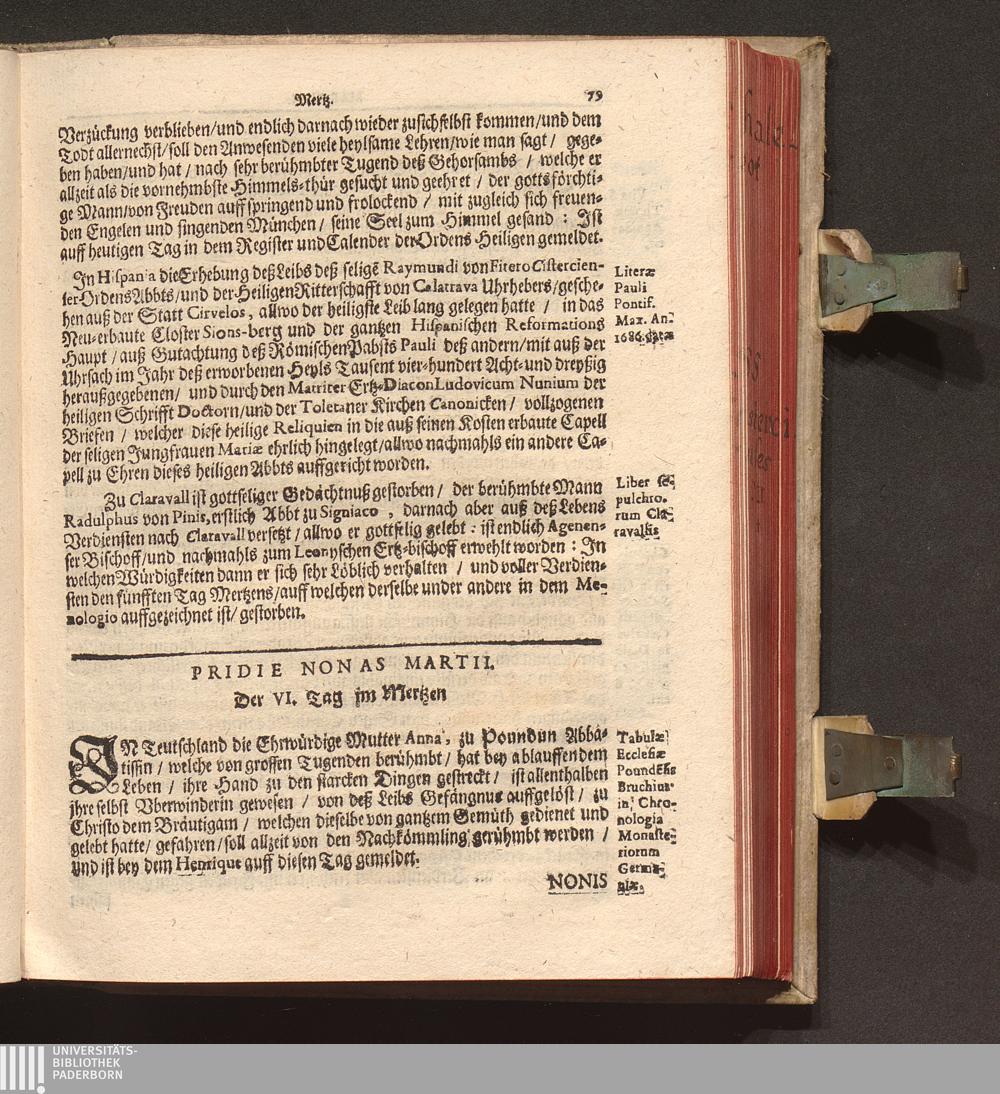 Mertz.
79
Verzückung verblieben/und endlich darnach wieder zusichselbst kommen/und dem
Todt allernechst/soll den Anwesenden viele heylsame Lehren/wie man sagt/ gege-
ben haben/und hat / nach sehr berühmbter Tugend deß Gehorsambs / welche er
allzeit als die vornehmbste Himmels-thür gesucht und geehret / der gottsförchti-
ge Mann/von Freuden auffspringend und frolockend / mit zugleich sich freuen-
den Engelen und singenden München / seine Seel zum Himmel gesand : Ist
auff heutigen Tag in dem Register und Calender der Ordens-Heiligen gemeldet.
In Hispania die Erhebung deß Leibs deß seligē Raymundi von Fitero Cistercien-
ser-Ordens Abbts/und der Heiligen Ritterschafft von Calatrava Uhrhebers/gesche-
hen auß der Statt Cirvelos, allwo der heiligste Leib lang gelegen hatte / in das
Neu-erbaute Closter Sions-berg und der gantzen Hispanischen Reformations
Haupt / auß Gutachtung deß Römischen Pabsts Pauli deß andern/mit auß der
Uhrsach im Jahr deß erworbenen Heyls Tausent vier-hundert Acht-und dreyßig
heraußgegebenen/ und durch den Matriter Ertz-Diacon Ludovicum Nunium der
heiligen Schrifft Doctorn/und der Toletaner Kirchen Canonicken / vollzogenen
Briefen / welcher diese heilige Reliquien in die auß seinen Kosten erbaute Capell
der seligen Jungfrauen Mariæ ehrlich hingelegt/allwo nachmahls ein andere Ca-
pell zu Ehren dieses heiligen Abbts auffgericht worden.
Literæ
Pauli
Pontif.
Max. An.
1686. datæ
Zu Claravall ist gottseliger Gedächtnuß gestorben / der berühmbte Mann
Radulphus von Pinis, erstlich Abbt zu Signiaco , darnach aber auß deß Lebens
Verdiensten nach Claravall versetzt / allwo er gottselig gelebt : ist endlich Agenen-
ser Bischoff/und nachmahls zum Leonyschen Ertz-bischoff erwehlt worden : In
welchen Würdigkeiten dann er sich sehr Löblich verhalten / und voller Verdien-
sten den fünfften Tag Mertzens/auff welchen derselbe under andere in dem Me-
nologio auffgezeichnet ist/ gestorben.
Liber se-
pulchro-
rum Cla-
ravallis
PRIDIE NONAS MARTII.
Der VI. Tag im Mertzen
IN Teutschland die Ehrwürdige Mutter Anna, zu Poundun Abbä-
tissin / welche von grossen Tugenden berühmbt / hat bey ablauffendem
Leben / ihre Hand zu den starcken Dingen gestreckt / ist allenthalben
ihre selbst Vberwinderin gewesen / von deß Leibs Gefängnus auffgelöst / zu
Christo dem Bräutigam / welchen dieselbe von gantzem Gemüth gedienet und
gelebt hatte/ gefahren/soll allzeit von den Nachkömmling gerühmbt werden /
und ist bey dem Henrique auff diesen Tag gemeldet.
Tabulæ
Ecclesiæ
Poundēsis
Bruchius
in Chro-
nologia
Monaste-
riorum
Germa-
niæ.
NONIS
UNIVERSITÄTS-
BIBLIOTHEK
PADERBORN